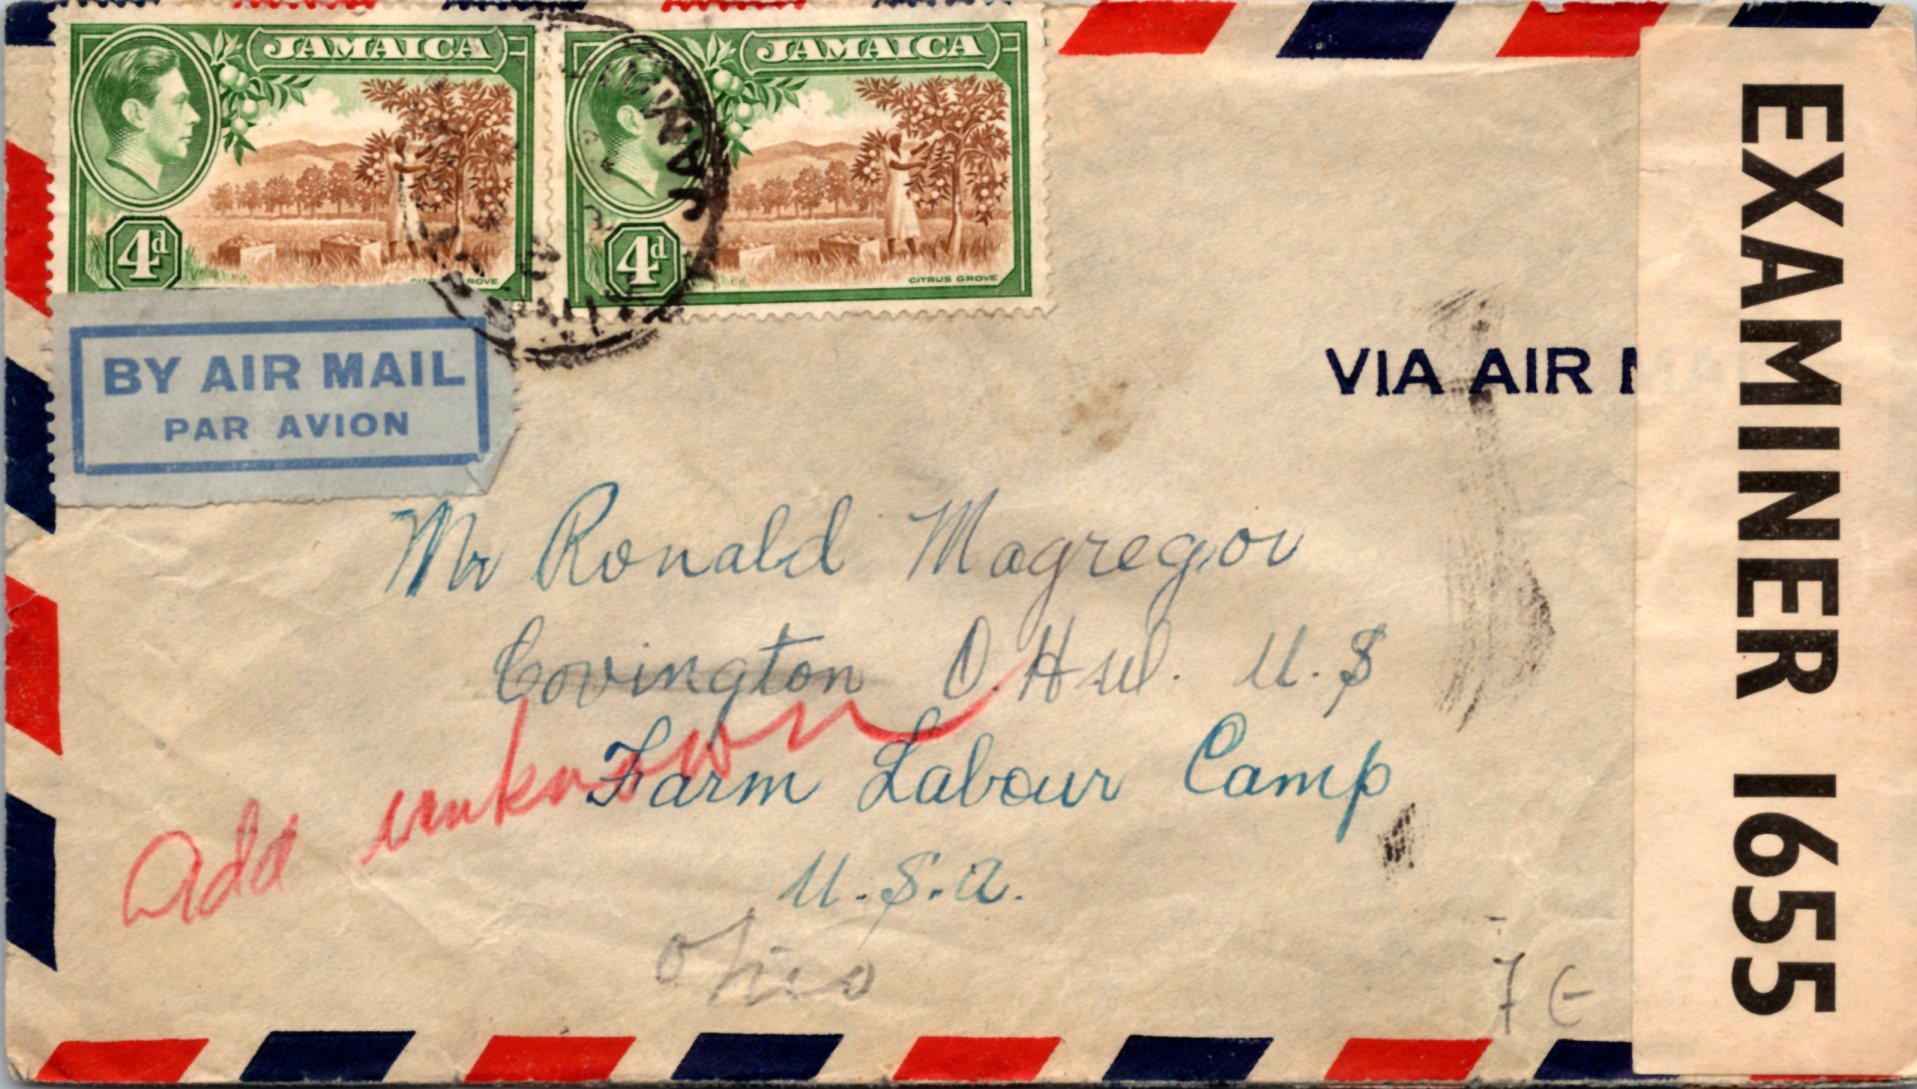 JAMAICA
JAMAICA
4d
4d
CITRUS GROVE
ROVE
JAMA
BY AIR MAIL
PAR AVION
VIA AIR M
EXAMINER 1655
Mr Ronald Magregor
Covington O.
U.S
Farm Labour Camp
U.S.A.
Add unknown
Ohio
7 E